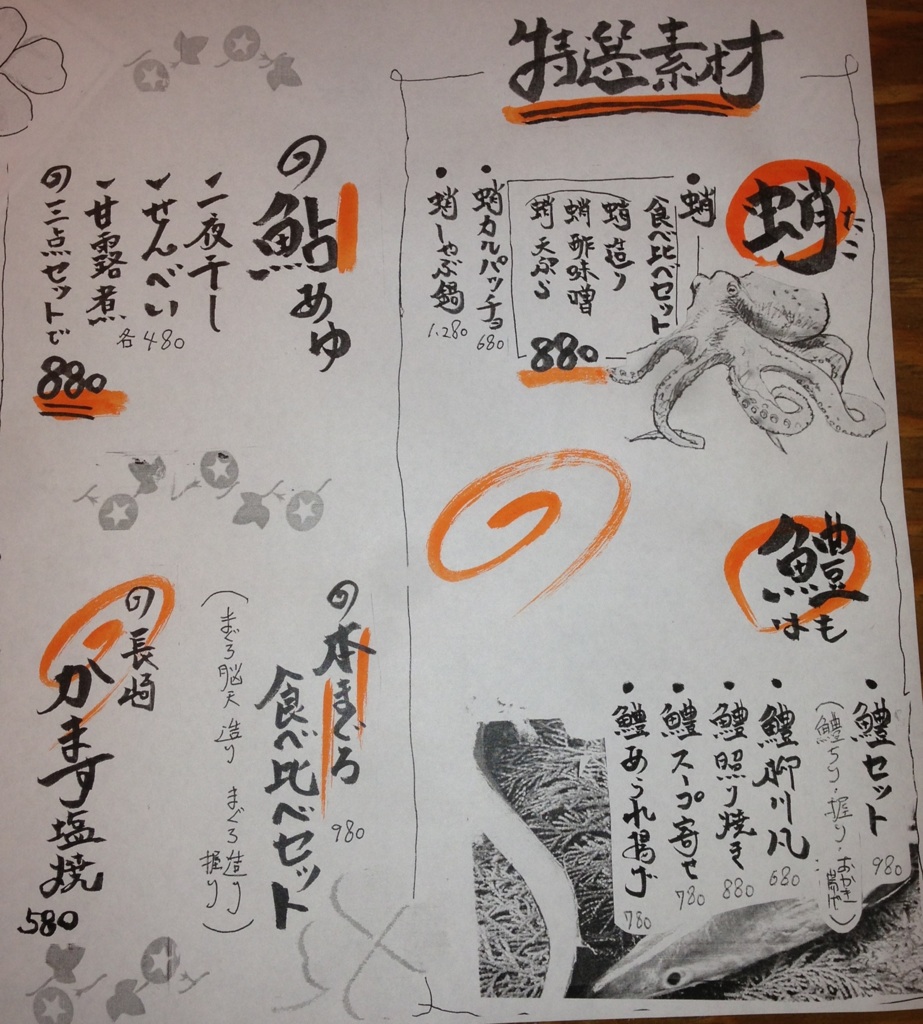 特選素材
蛸
たこ
・蛸
食べ比べセット
蛸造り
蛸酢味噌
蛸天ぷら
880
・蛸カルパッチョ
680
・蛸しゃぶ鍋
1,280
鱧
はも
・鱧セット
(鱧ちり・握り・おかき揚げ)
980
・鱧柳川風
680
・鱧照り焼き
880
・鱧スープ寄せ
780
・鱧あられ揚げ
780
の鮎あゆ
一夜干し
せんべい
各480
甘露煮
の三点セットで
880
の本まぐろ
食べ比べセット
980
(まぐろ脳天造り まぐろ造り 握り)
の長崎
かます塩焼
580